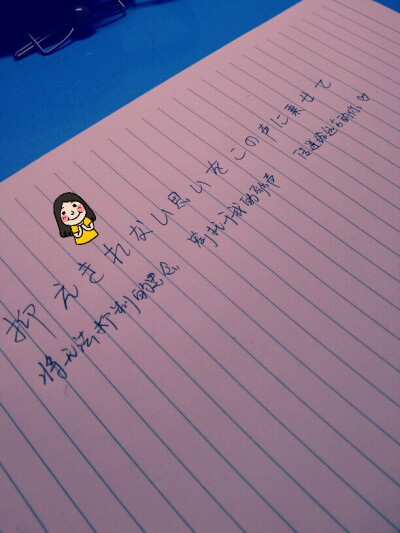 抑えきれない思いをこの声に乗せて
将无法抑制的思念 寄托于我的歌声